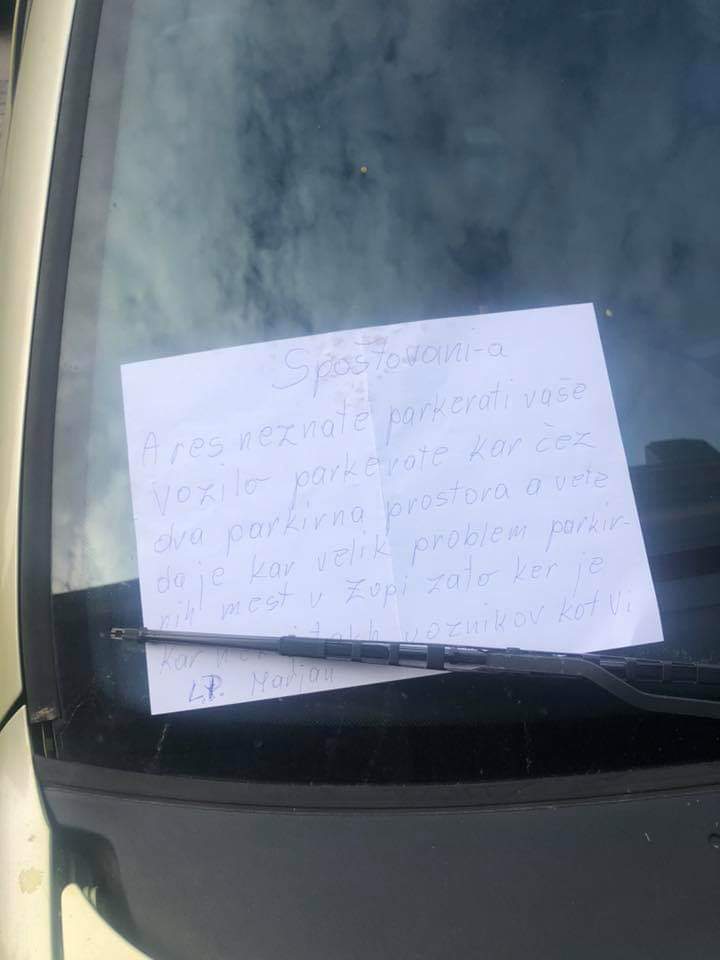 Spoštovani-a
A res neznate parkerati vaše
vozilo parkerate kar čez
dva parkirna prostora a veste
da je kar velik problem parkir-
nih mest v Župi zato ker je
kar takih voznikov kot vi
LP. Marjan